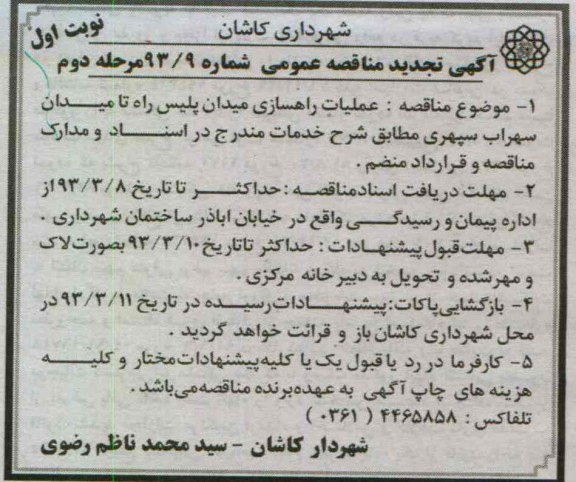 شهرداری کاشان
نوبت اول
آگهی تجدید مناقصه عمومی شماره ۹۳/۹ مرحله دوم
۱- موضوع مناقصه : عملیات راهسازی میدان پلیس راه تا میدان
سهراب سپهری مطابق شرح خدمات مندرج در اسناد و مدارک
مناقصه و قرارداد منضم .
۲- مهلت دریافت اسناد مناقصه : حداکثر تا تاریخ ۹۳/۳/۸ از
اداره پیمان و رسیدگی واقع در خیابان اباذر ساختمان شهرداری .
۳- مهلت قبول پیشنهادات : حداکثر تا تاریخ ۹۳/۳/۱۰ بصورت لاک
و مهر شده و تحویل به دبیر خانه مرکزی .
۴- بازگشایی پاکات: پیشنهادات رسیده در تاریخ ۹۳/۳/۱۱ در
محل شهرداری کاشان باز و قرائت خواهد گردید .
۵- کارفرما در رد یا قبول یک یا کلیه پیشنهادات مختار و کلیه
هزینه های چاپ آگهی به عهده برنده مناقصه می باشد .
تلفاکس : ۴۴۶۵۸۵۸ ( ۰۳۶۱ )
شهردار کاشان - سید محمد ناظم رضوی